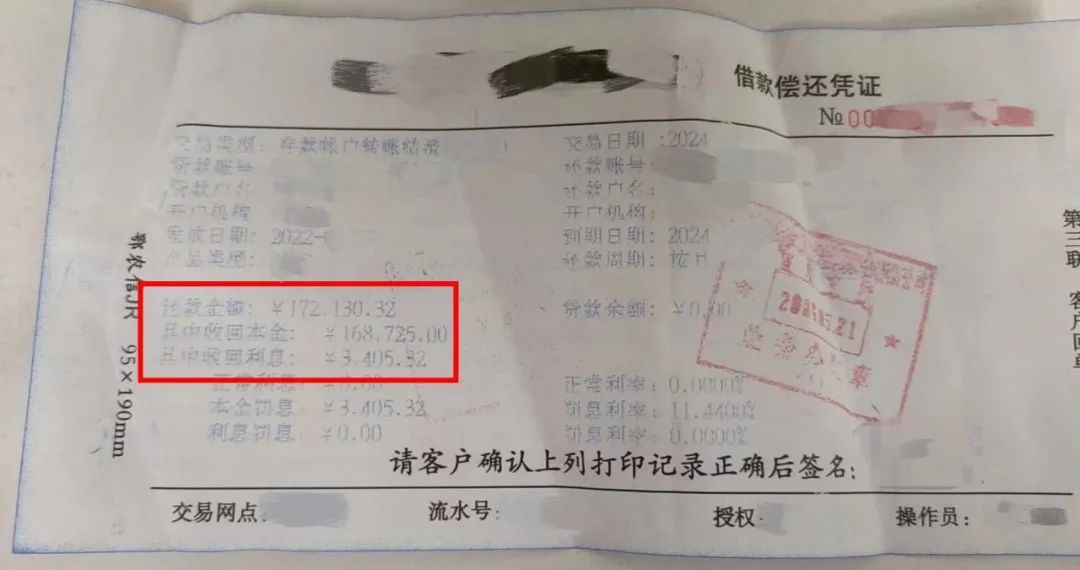 借款偿还凭证
№00
交易类型：存款帐户转账结清 交易日期：2024
贷款账号 还款账号：
贷款户名 还款户名：
开户机构 开户机构：
发放日期：2022-0 到期日期：2024
产品类型： 还款周期：按日
还款金额：￥172,130.32 贷款余额：￥0.00
其中收回本金：￥168,725.00
其中收回利息：￥3,405.32
正常利息：￥0.00 正常利率：0.0000%
本金罚息：￥3,405.32 罚息利率：11.4400%
利息罚息：￥0.00 罚息利率：0.0000%
请客户确认上列打印记录正确后签名：
交易网点： 流水号： 授权 操作员：
鄂农信JR 95×190mm
第三联 客户回单
业务
章